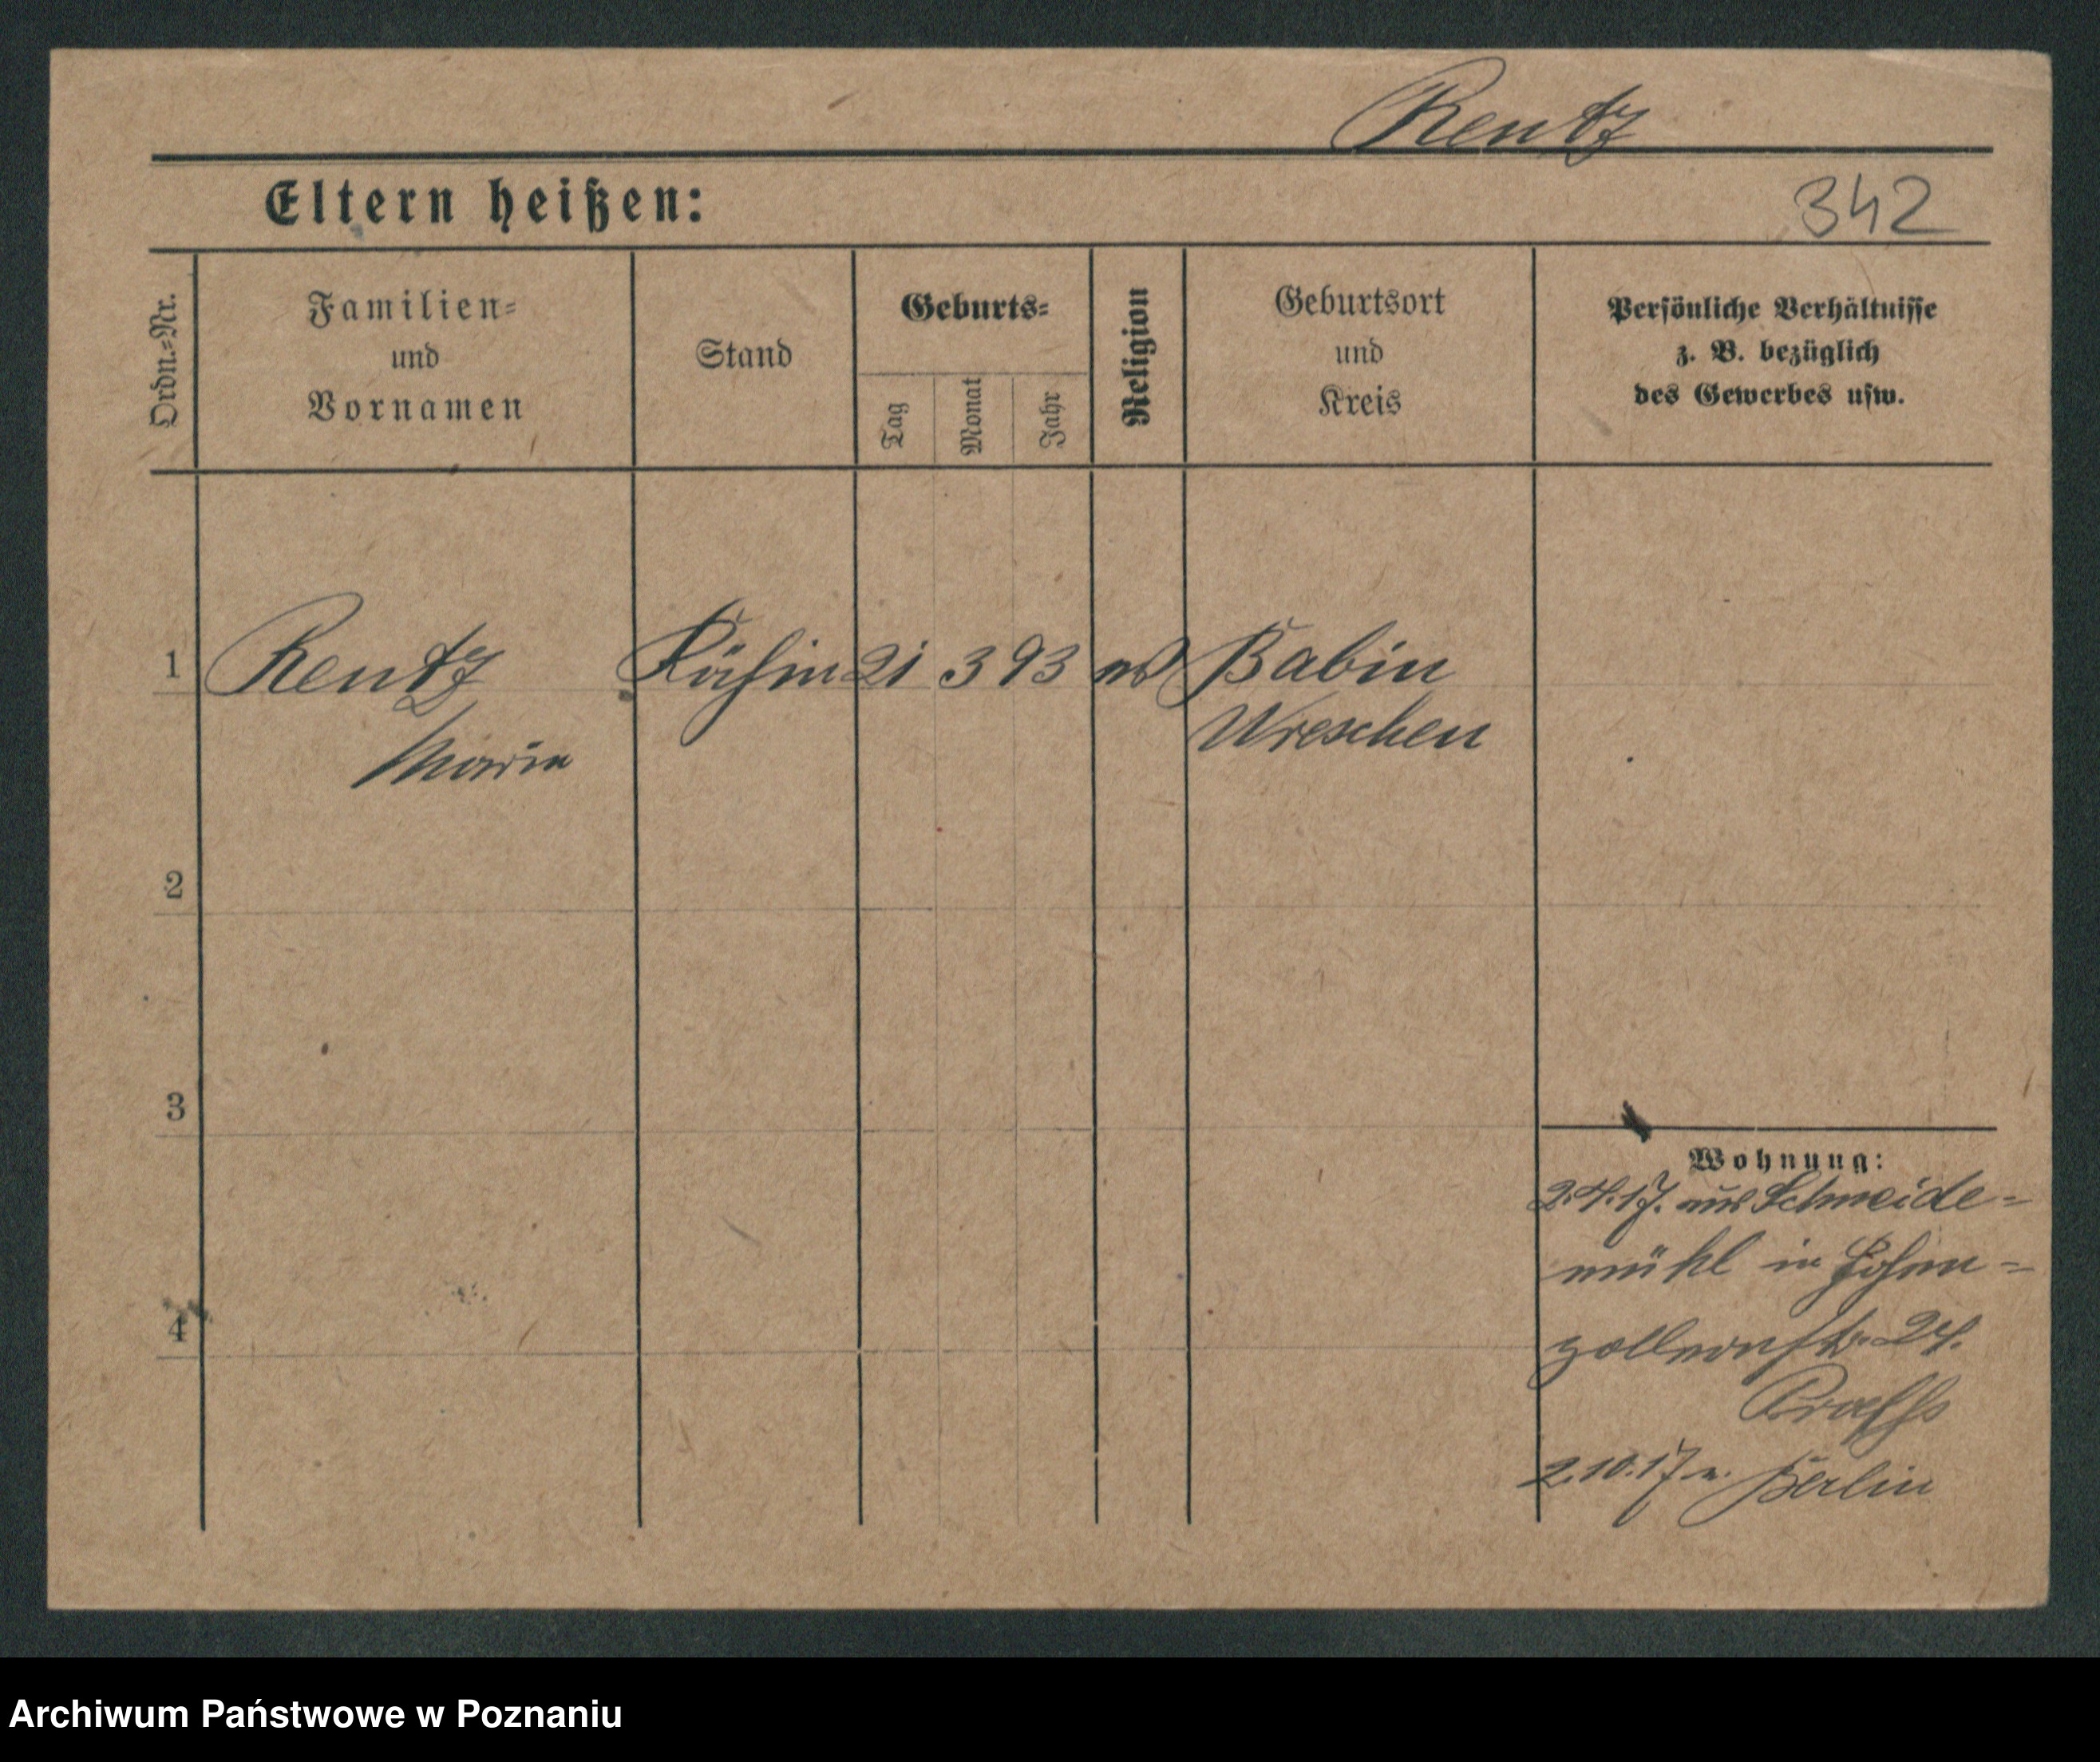 Rentz
Eltern heißen:
342
Ordn.=Nr.
Familien=
und
Vornamen
Stand
Geburts=
Tag
Monat
Jahr
Religion
Geburtsort
und
Kreis
Persönliche Verhältnisse
z. B. bezüglich
des Gewerbes usw.
1
Rentz
Marie
21
3
93
ev
Babin
Wreschen
2
3
4
Wohnung:
2.4.17. aus Schneide=
mühl in Hohen=
zollernstr. 24.
2.10.17 n. Berlin
Archiwum Państwowe w Poznaniu